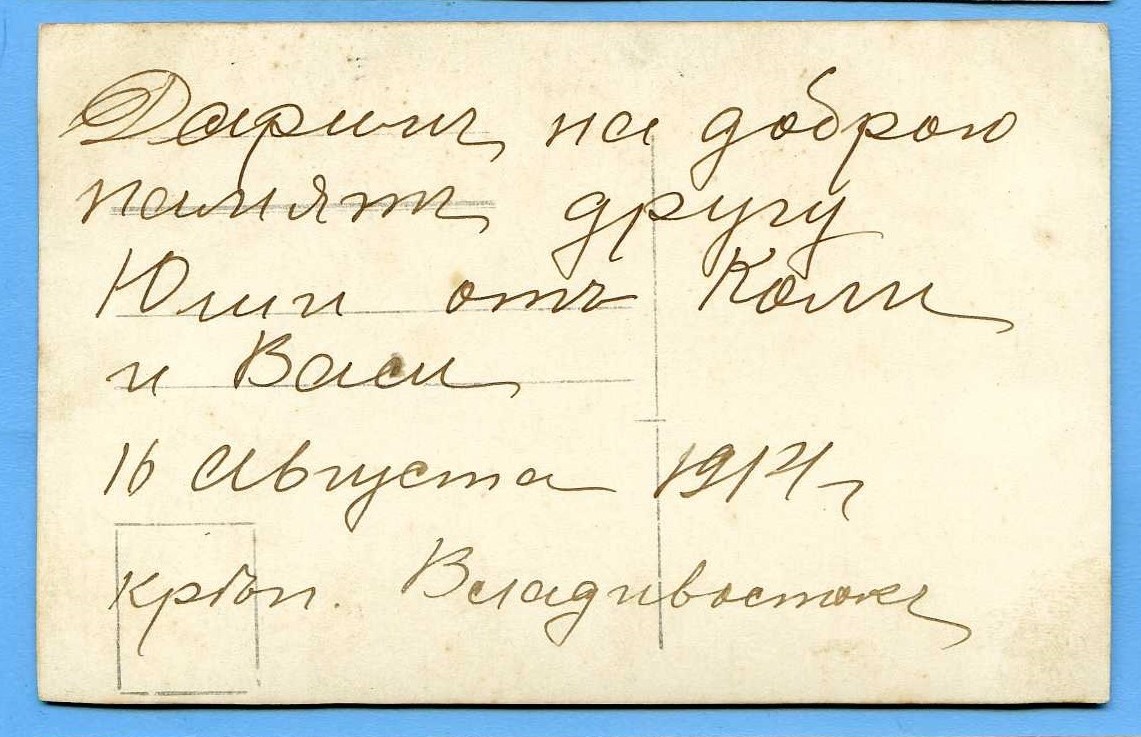 Даримъ на доброю
память другу
Юлии отъ Коли
и Васи
16 Августа 1914 г
крѣп. Владивостокъ